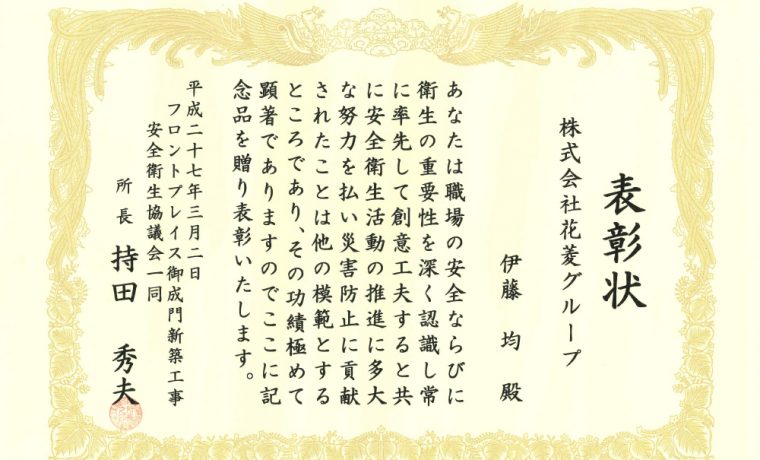 表彰状
株式会社花菱グループ
伊藤 均 殿
あなたは職場の安全ならびに
衛生の重要性を深く認識し常
に率先して創意工夫すると共
に安全衛生活動の推進に多大
な努力を払い災害防止に貢献
されたことは他の模範とする
ところであり、その功績極めて
顕著でありますのでここに記
念品を贈り表彰いたします。
平成二十七年三月二日
フロントプレイス御成門新築工事
安全衛生協議会一同
所長 持田 秀夫